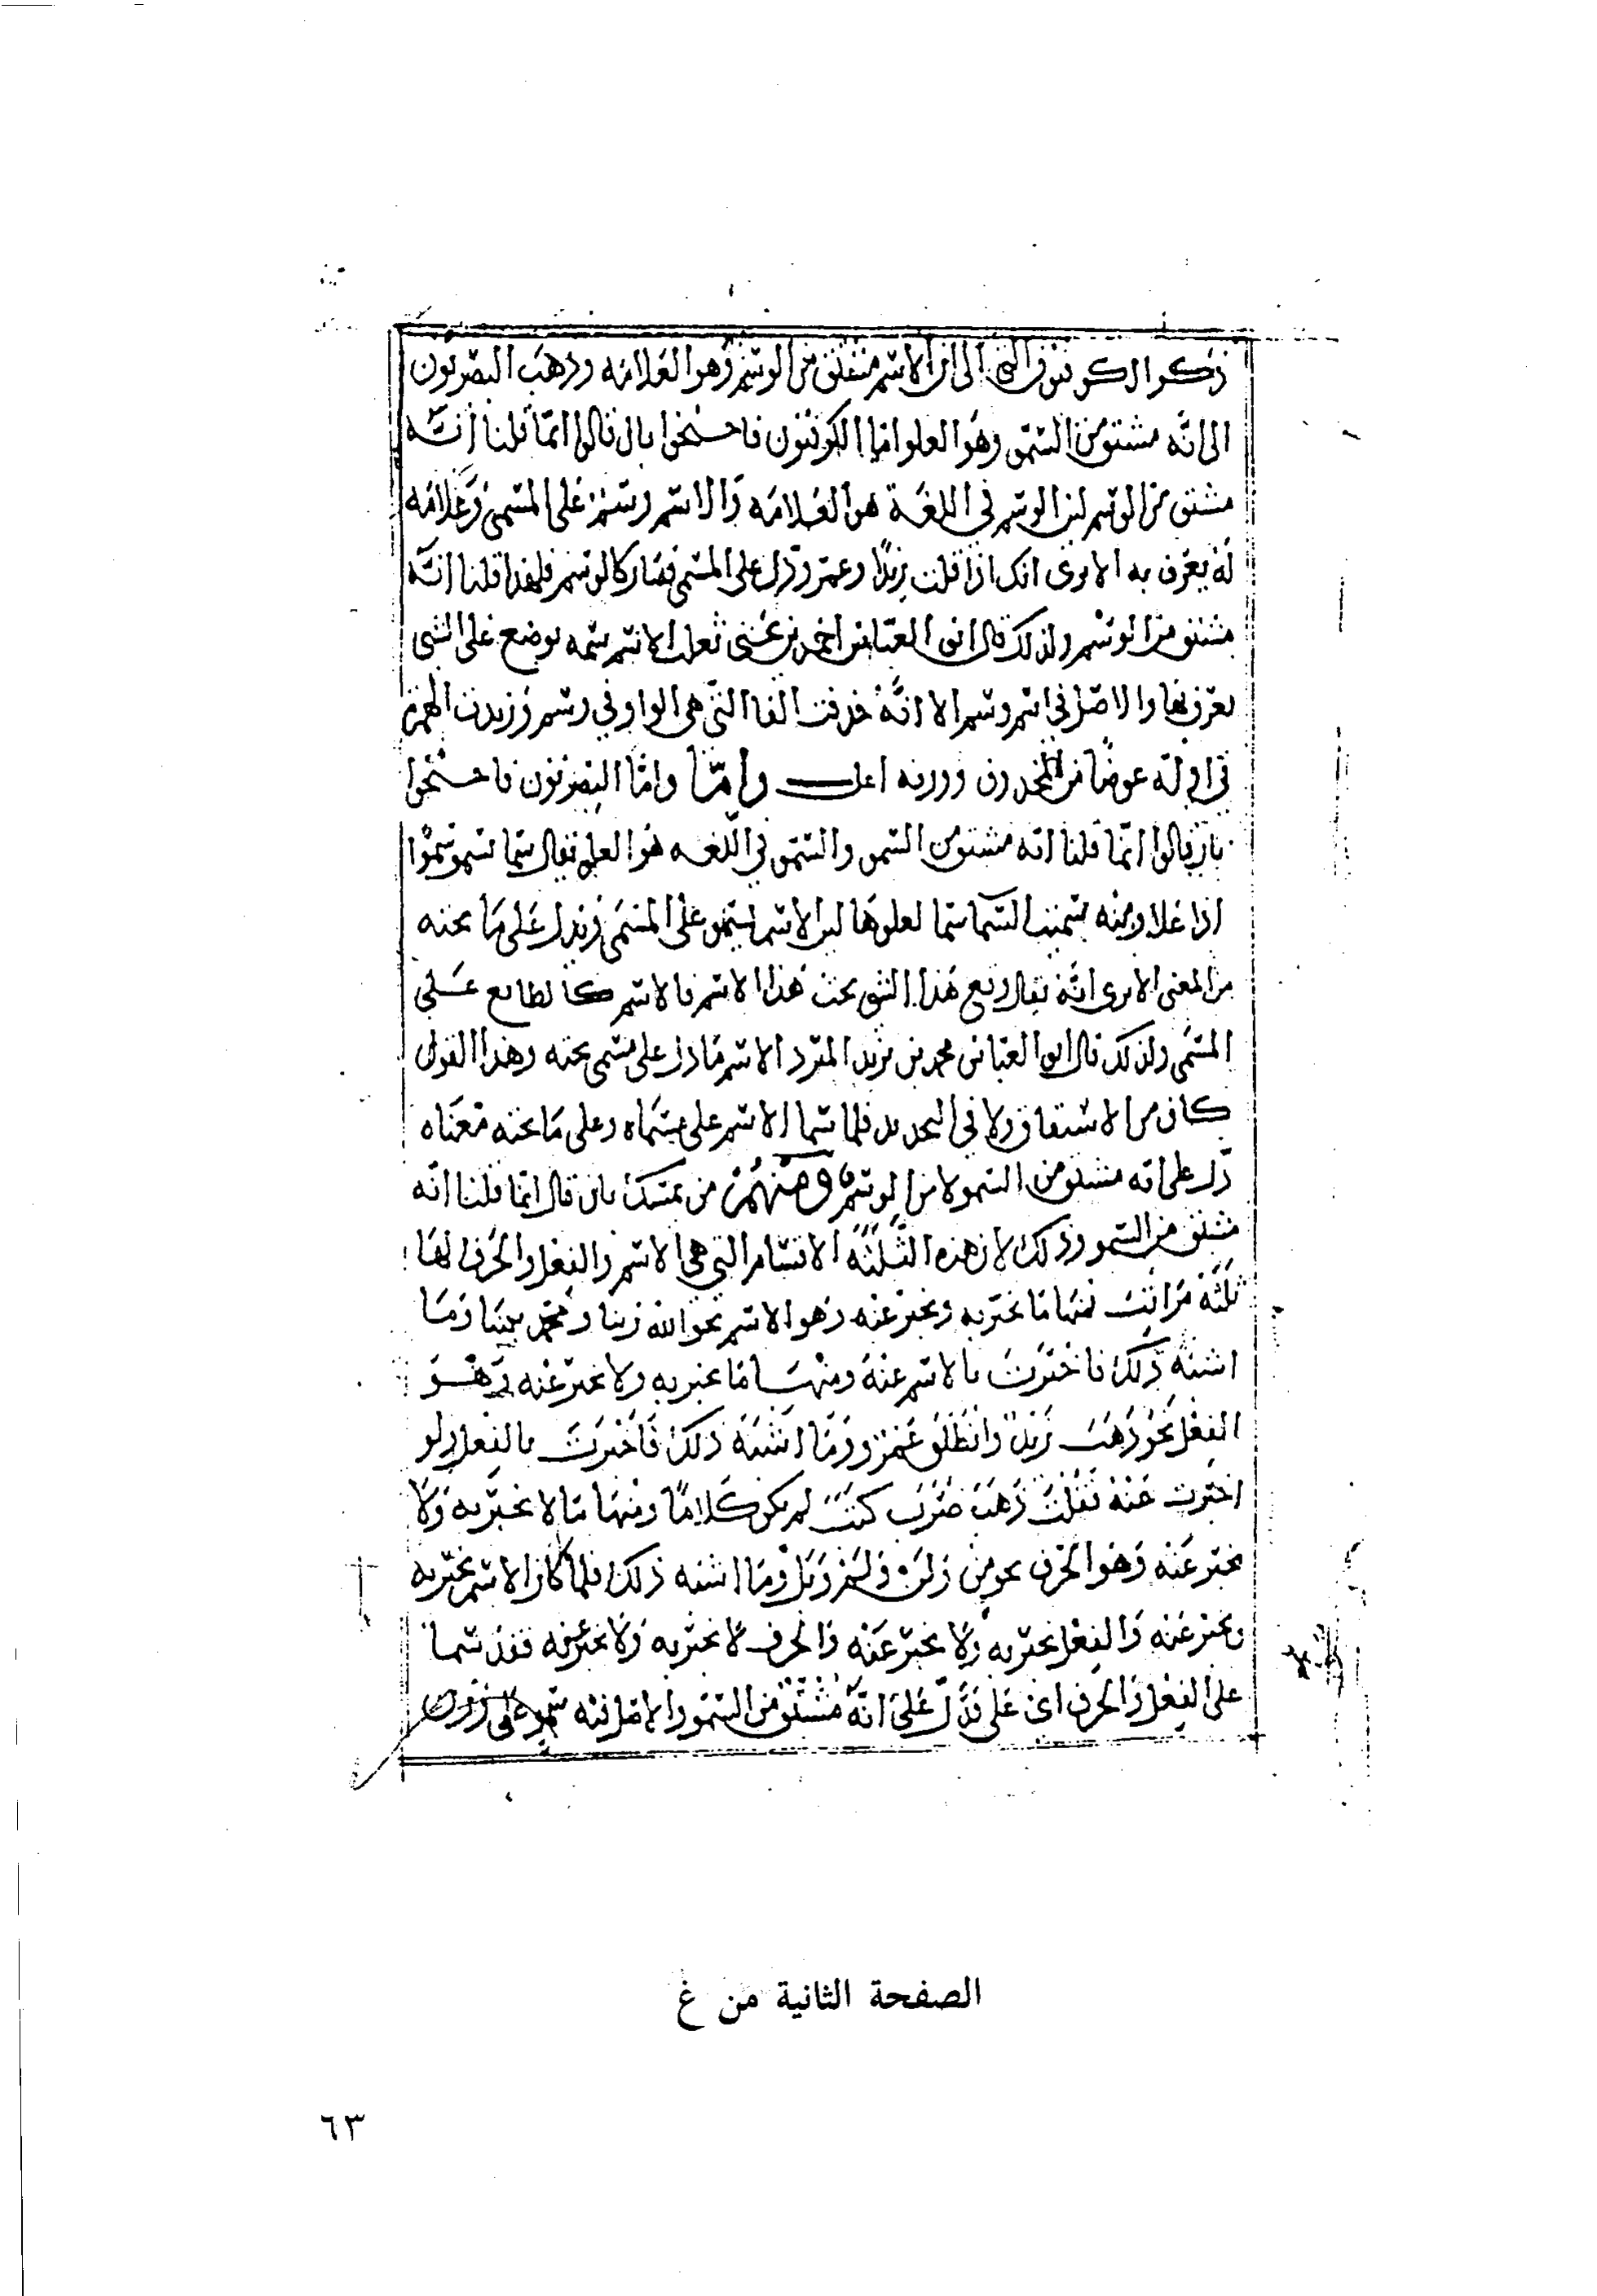 ذكر الكوفيون الى ان الاسم مشتق من الوسم وهو العلامه وذهب البصريون
الى انّه مشتق من السّمو وهو العلو امّا الكوفيون فاحتجّوا بان قالوا انمّا قلنا انّه
مشتق من الوسم لان الوسم في اللغة هو العلامه والاسم وسم على المسمى وعلامه
له يعرف به الا ترى انك اذا قلت زيدٌ او عمرو دل على المسمى فصار كالوسم فلهذا قلنا انّه
مشتق من الوسم ولذلك قال ابو العبّاس احمد بن يحيى ثعلب الاسم سمه توضع على الشى
يعرف بها والاصل في اسم وسم الا انّه حذفت الفا التي هي الواو في وسم وزيدت الهمزه
في اوّله عوضًا من المحذوف ووزنه اعل وامّا وامّا البصريون فاحتجّوا
بان قالوا انّما قلنا انّه مشتق من السّمو والسّمو في اللّغه هو العلو يقال سما يسمو سُمُوّا
اذا علا ومنه سميت السّما سما لعلوها لان الاسم يسمو على المسمّى ويدل على ما تحته
من المعنى الا ترى انّه يقال وقع هذا الشى تحت هذا الاسم فالاسم كالطابع على
المسمّى ولذلك قال ابو العبّاس محمد بن يزيد المبرّد الاسم ما دل على مسمى تحته وهذا القول
كاف من الاشتقاق لا في التحديد فلما سما الاسم على مسمّاه وعلى ما تحته معناه
دّل على انّه مشتق من السّمو لا من الوسم ومنهم من تمسّك بان قال انّما قلنا انّه
مشتق من السّمو وذلك لان هذه الثّلثه الاقسام التي هي الاسم والفعل والحرف لها
ثلثة مراتب فمنها ما يخبر به ويخبر عنه وهو الاسم نحو الله ربنا ومحمد نبيّنا وما
اشبه ذلك فاخبرت بالاسم عنه ومنها ما يخبر به ولا يخبر عنه وهو
الفعل نحو ذهب زيد وانطلق عمرو وما اشبه ذلك فاخبرت بالفعل ولو
اخبرت عنه فقلت ذهب ضرب كتب لم يكن كلاما ومنها ما لا يخبر به ولا
يخبر عنه وهو الحرف نحو من ولن ولم وبل وما اشبه ذلك فلما كان الاسم يخبر به
ويخبر عنه والفعل يخبر به ولا يخبر عنه والحرف لا يخبر به ولا يخبر عنه فقد سما
على الفعل والحرف اى على فدّل على انّه مشتق من السّمو والاصل فيه سمو على وزن
الصفحة الثانية من غ
٦٣